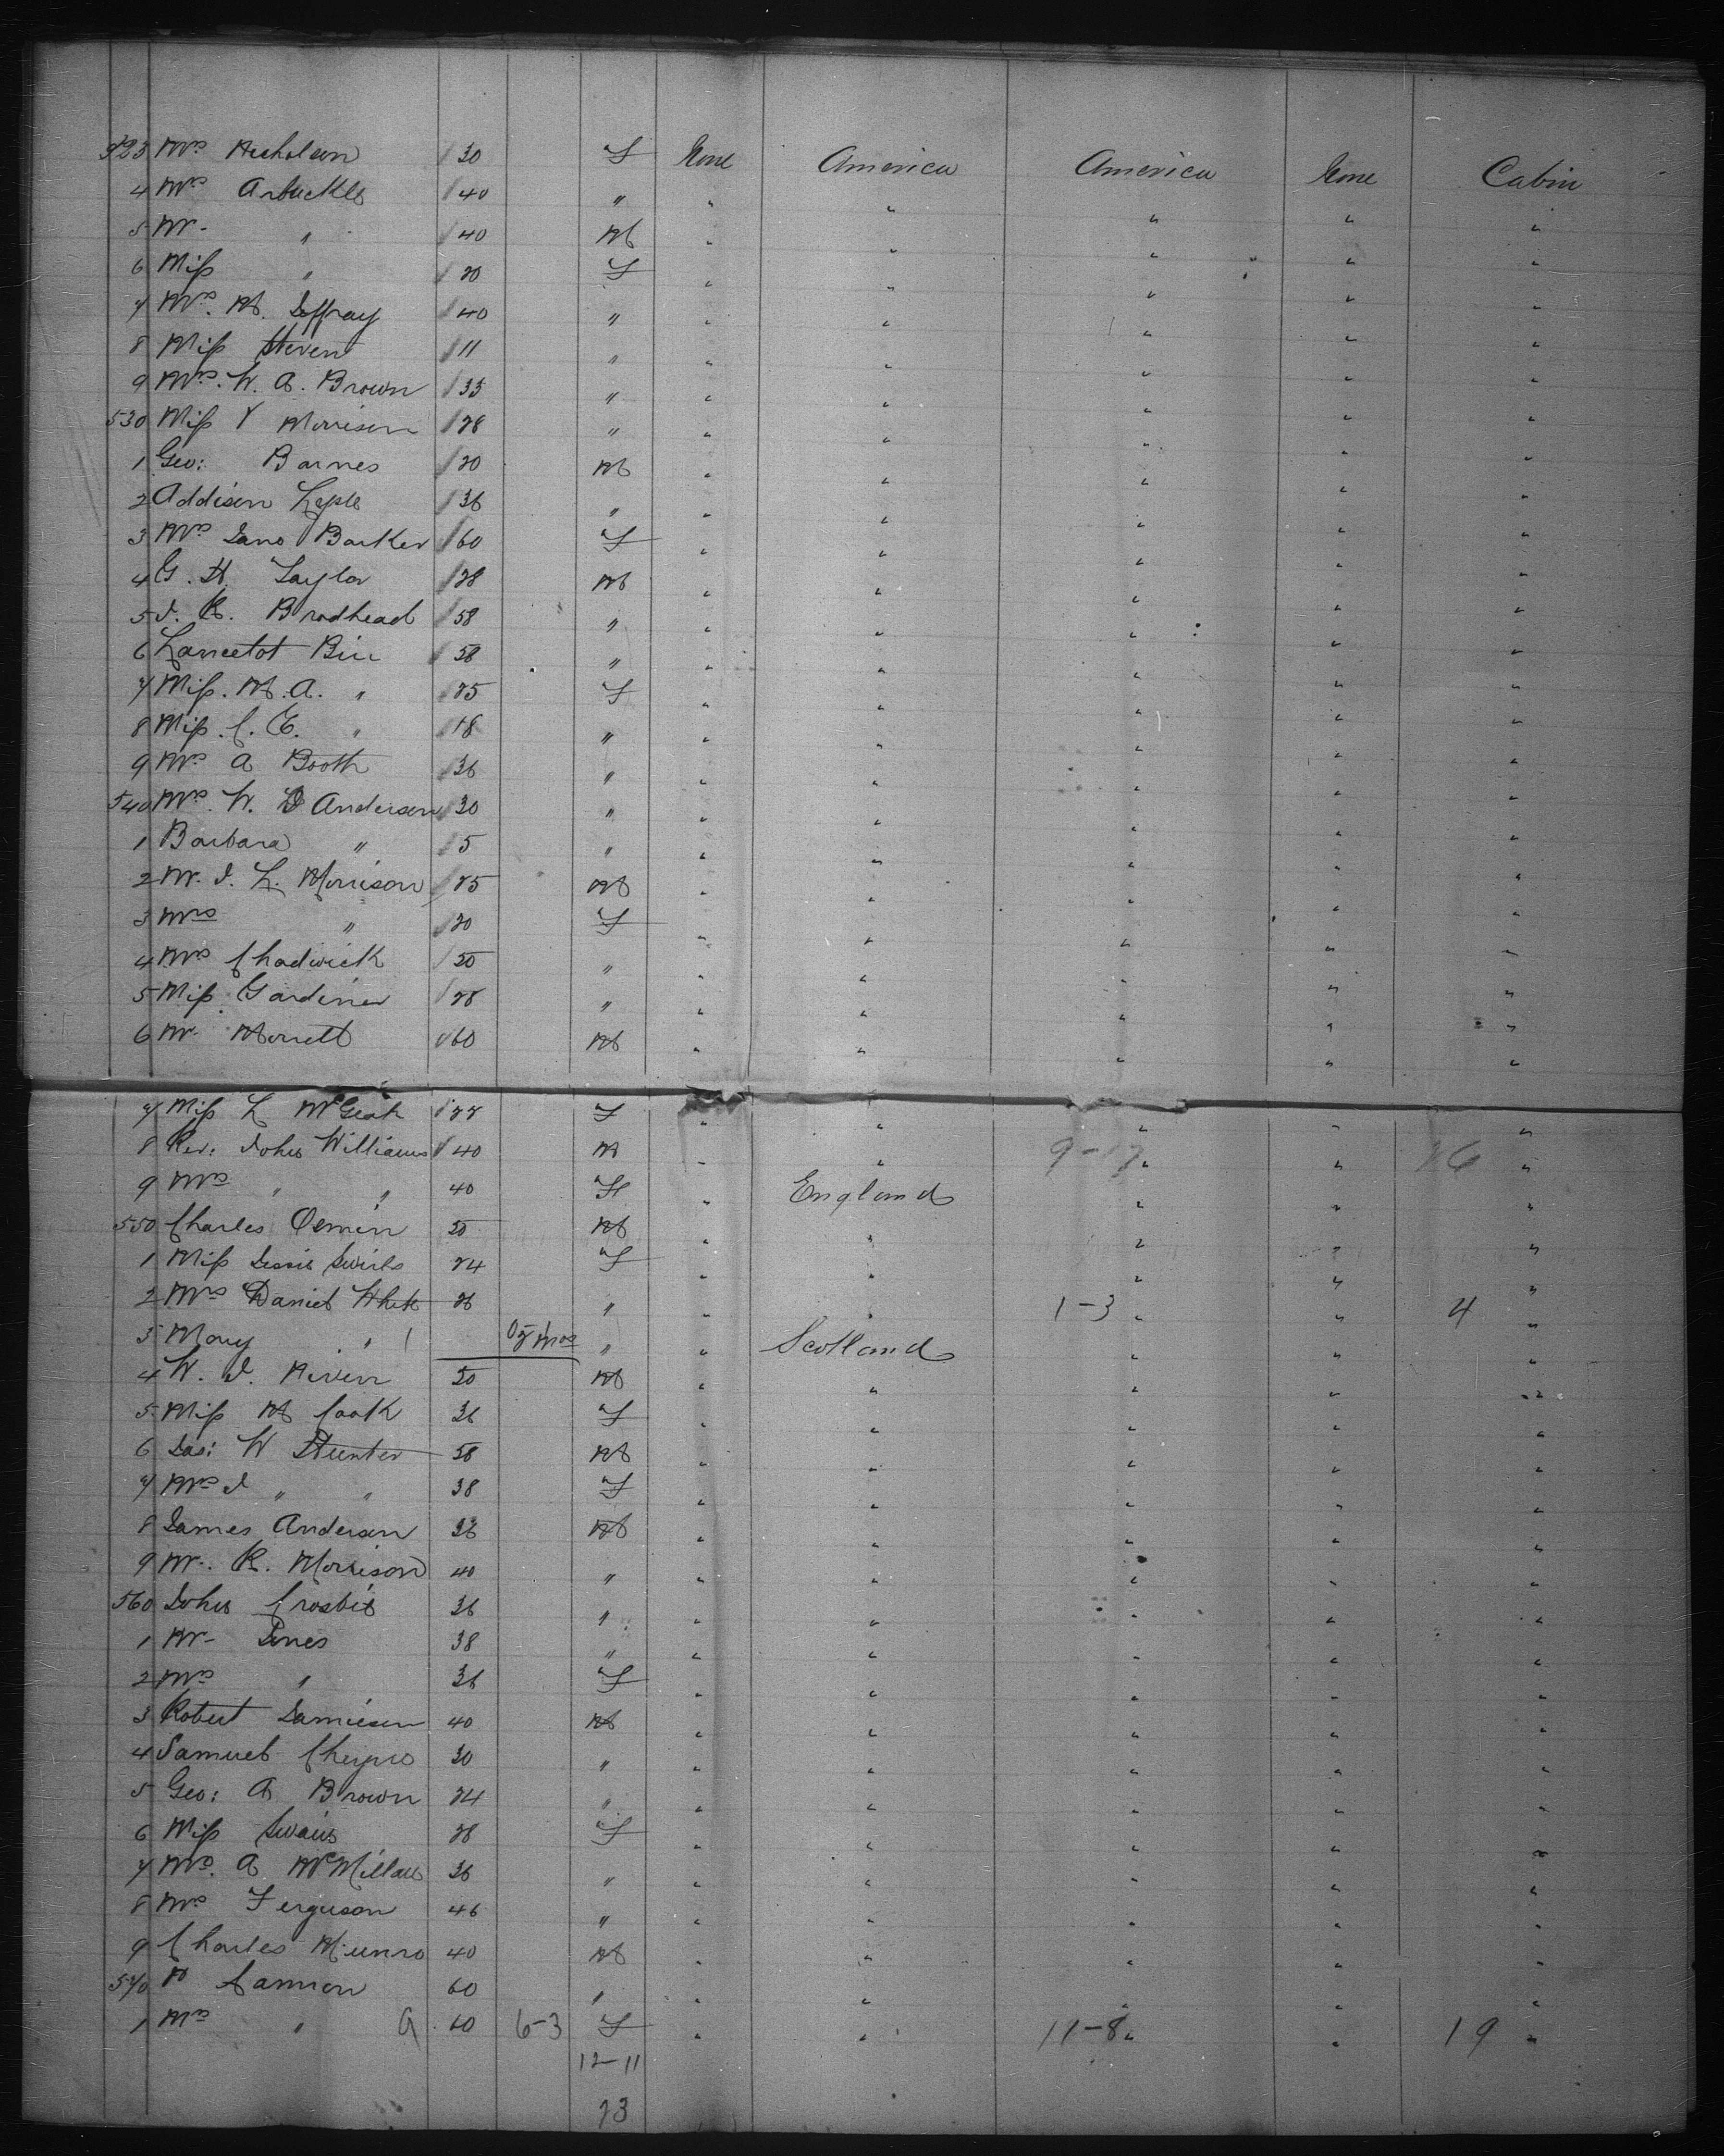 523 Mrs Nicholson 30 F None America America None Cabin
4 Mrs Arbuckle 40 " " " " " "
5 Mr. " 40 M " " " " "
6 Miss " 20 F " " " " "
7 Mrs. M. Jeffray 40 " " " " " "
8 Miss Steven 11 " " " " " "
9 Mrs. W. A. Brown 33 " " " " " "
530 Miss Y Morrison 28 " " " " " "
1 Geo: Barnes 20 M " " " " "
2 Addison 36 " " " " " "
3 Mrs Jane Barker 60 F " " " " "
4 G. H. Taylor 28 M " " " " "
5 J. R. Brodhead 58 " " " " " "
6 Lancelot 58 " " " " " "
7 Miss. M. A. " 25 F " " " " "
8 Miss. C. E. " 18 " " " " " "
9 Mrs A Booth 36 " " " " " "
540 Mrs. W. D Anderson 30 " " " " " "
1 Barbara " 5 " " " " " "
2 Mr. J. L. Morrison 25 M " " " " "
3 Mrs " 20 F " " " " "
4 Mrs Chadwick 50 " " " " " "
5 Miss Gardiner 28 " " " " " "
6 Mr. Morrell 60 M " " " " "
7 Miss L 22 F " " " " "
8 Rev: John Williams 40 M " " 9-17 " " 26 "
9 Mrs " " 40 F " England " " "
550 Charles 50 M " " " " "
1 Miss Jessie 24 F " " " " "
2 Mrs Daniel White 26 " " " 1-3 " " 4 "
3 Mary " 1 mos " " Scotland " " "
4 W. J. Niven 50 M " " " " "
5 Miss M Cook 36 F " " " " "
6 Jas: W Hunter 58 M " " " " "
7 Mrs J " " 38 F " " " " "
8 James Anderson 36 M " " " " "
9 Mr. R. Morrison 40 " " " " " "
560 John Crosbie 36 " " " " " "
1 Mr. Innes 38 " " " " " "
2 Mrs " 36 F " " " " "
3 Robert Jamieson 40 M " " " " "
4 Samuel Cheyne 30 " " " " " "
5 Geo: A Brown 24 " " " " " "
6 Miss Swain 28 F " " " " "
7 Mrs. A McMillan 36 " " " " " "
8 Mrs Ferguson 46 " " " " " "
9 Charles Munro 40 M " " " " "
570 60 " " " " " "
1 Mrs " 60 6-3 F " " 11-8 " " 19 "
12-11
23